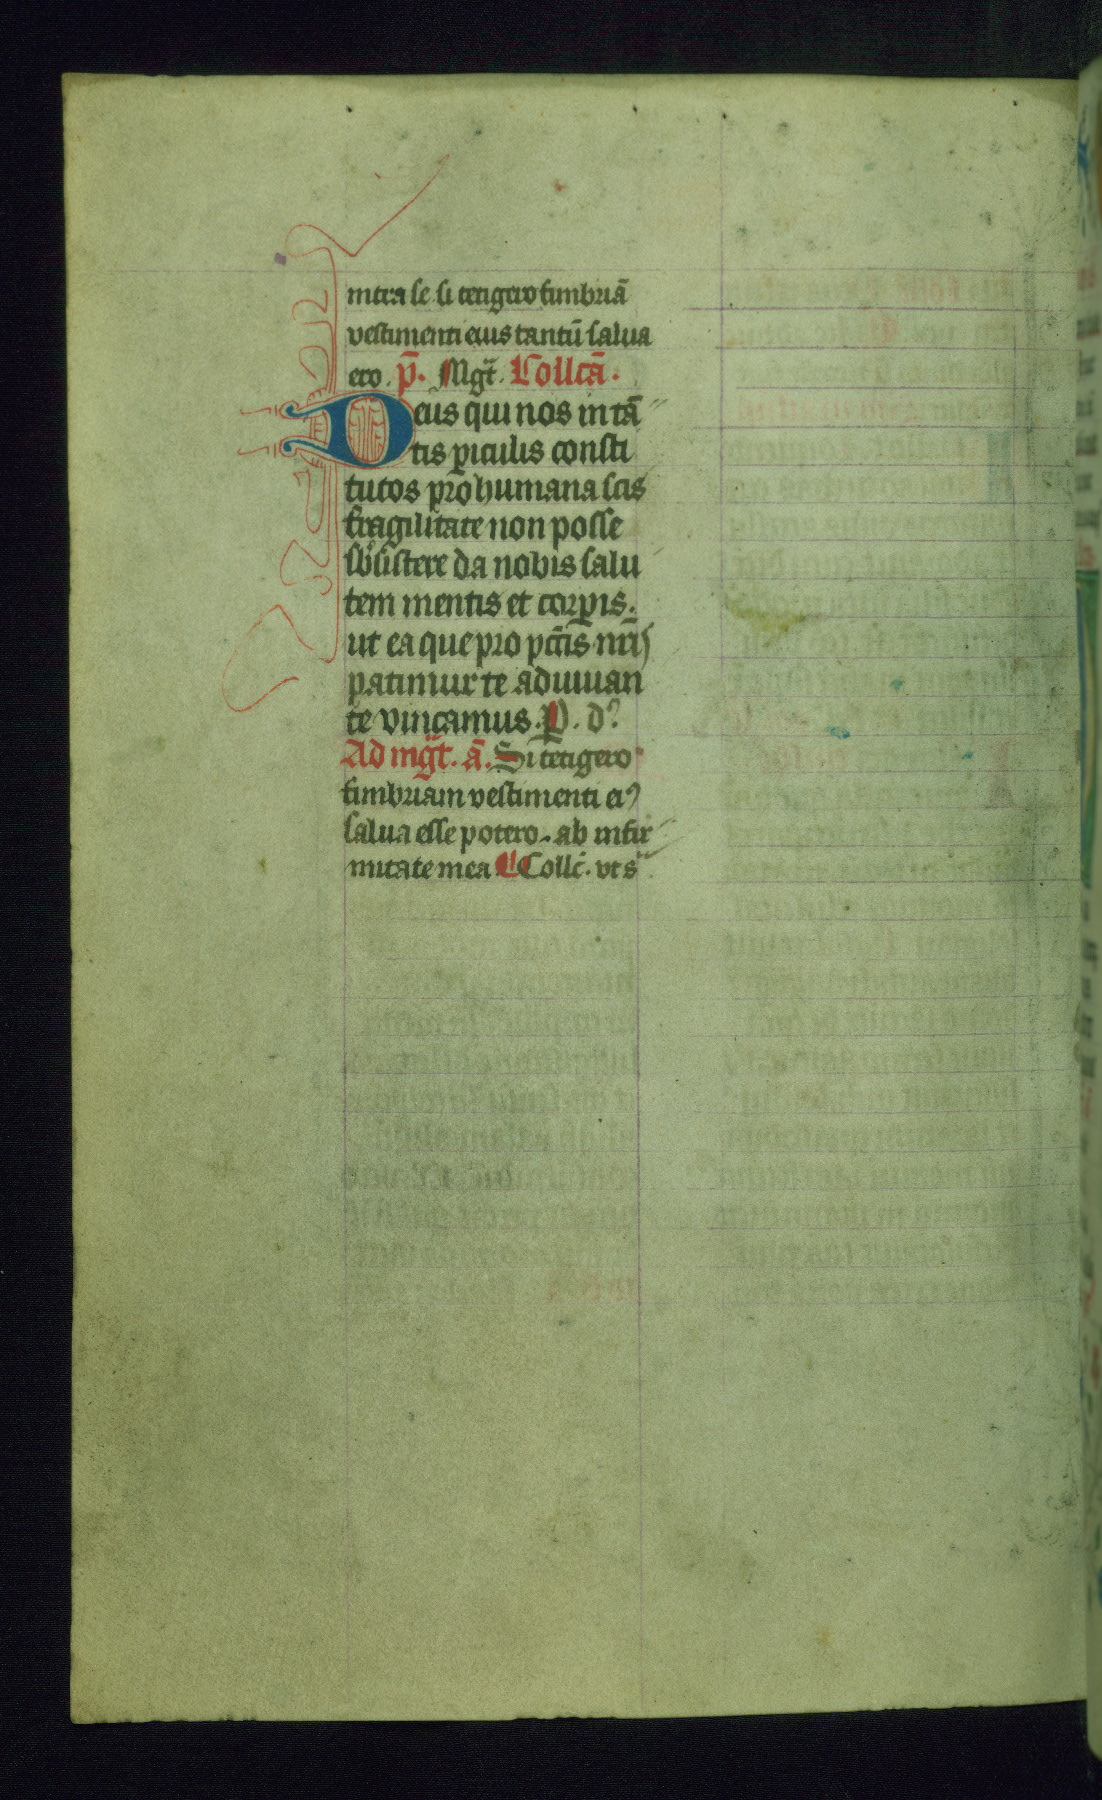 intra se si tetigero fimbriā
vestimenti eius tantū salua
ero. p̄. Mgt̄. Collcā.
Deus qui nos in tā
tis ꝑiculis consti
tutos pro humana scis
fragilitate non posse
sb̓sistere da nobis salu
tem mentis et corꝑis.
ut ea que pro pctīs nr̄is
patimur te adiuuan
te vincamus. P. d?
Ad mgt̄. ā. Si tetigero
fimbriam vestimenti eiꝰ
salua esse potero. ab infir
mitate mea Collc̄. vt s